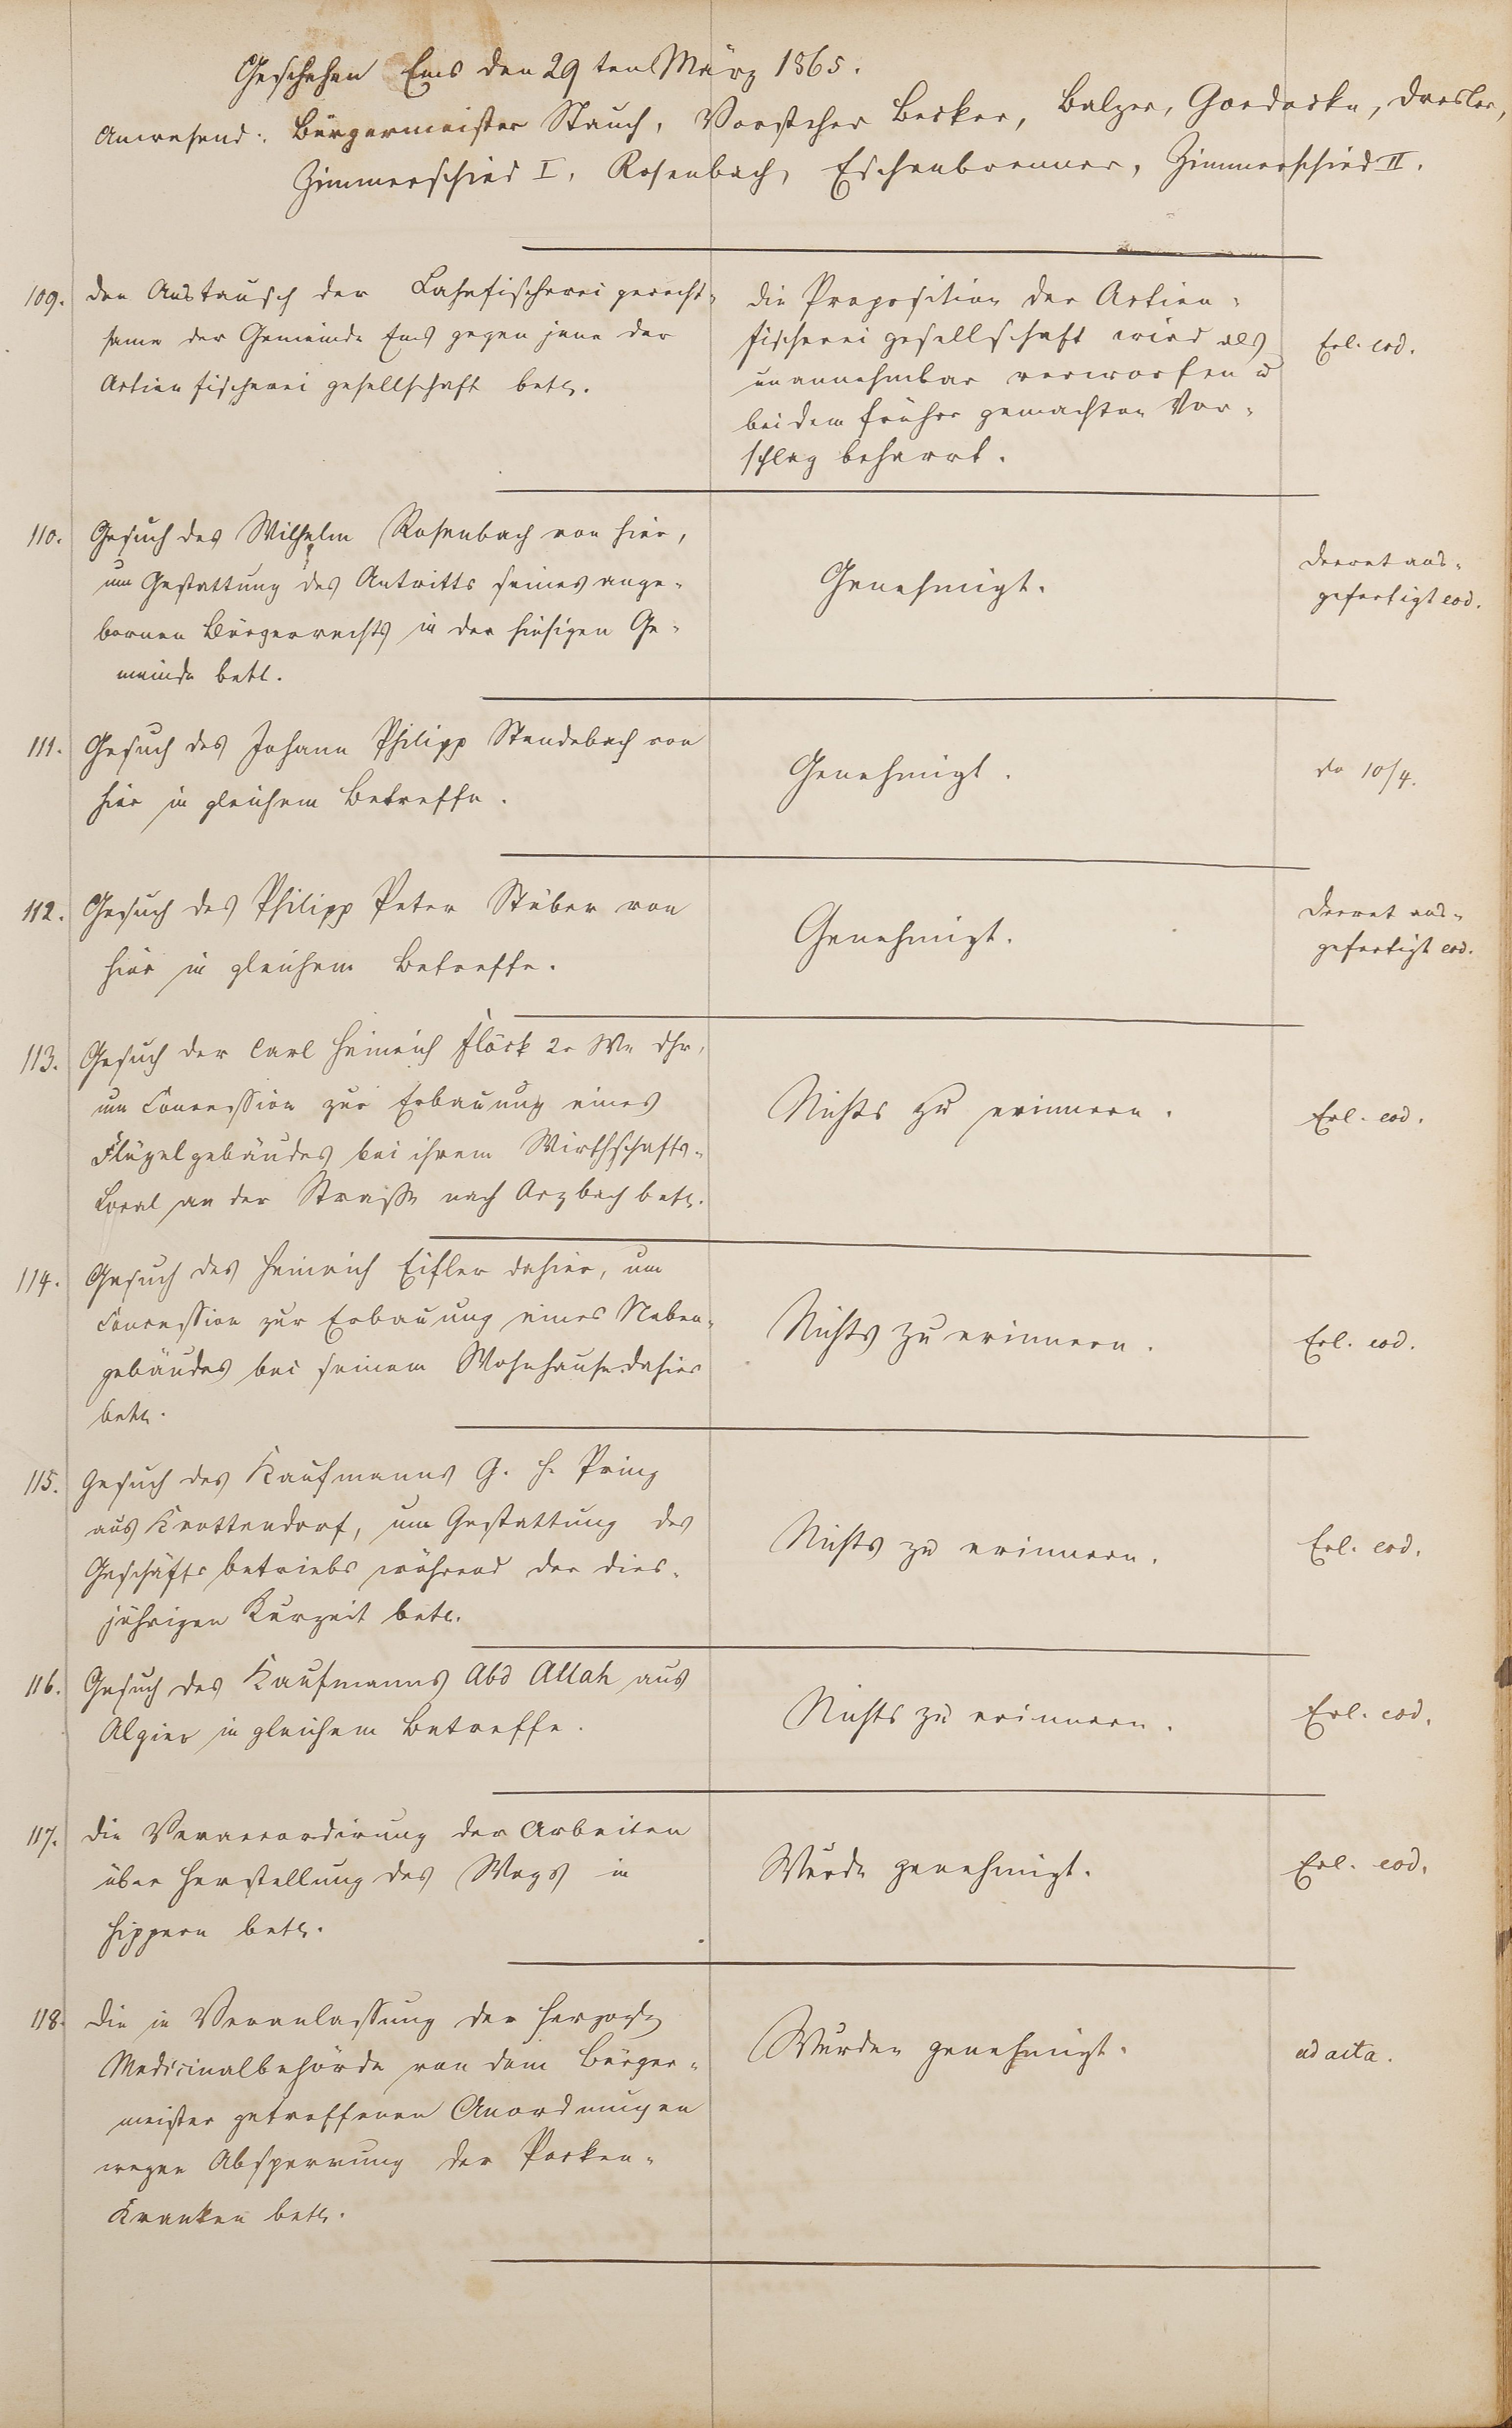 Geschehen Ems den 29ten März 1865.
Anwesend: Bürgermeister Stauch, Vorsteher Becker, Balzer, Goedecke, Dresler,
Zimmerschied I, Rosenbach, Eschenbrenner, Zimmerschied II.
109. den Austausch der Lahnfischerei gerecht-
same der Gemeinde Ems gegen jene der
Actien fischerei gesellschaft betr.
die Proposition der Actien-
fischerei gesellschaft wird als
unannehmbar verworfen u
bei dem früher gemachten Vor-
schlag beharrt.
Erl. eod.
110. Gesuch des Wilhelm Rosenbach von hier,
um Gestattung des Antritts seines ange-
bornen Bürgerrechts in der hiesigen Ge-
meinde betr.
Genehmigt.
Decret aus-
gefertigt eod.
111. Gesuch des Johann Philipp Standebach von
hier in gleichem Betreffe.
Genehmigt.
do 10/4.
112. Gesuch des Philipp Peter Stüber von
hier in gleichem Betreffe.
Genehmigt.
Decret aus-
gefertigt eod.
113. Gesuch der Carl Heinrich Flöck 2r We dhr,
um Concession zur Erbauung eines
Flügelgebäudes bei ihrem Wirthschafts-
Local an der Straße nach Arzbach betr.
Nichts zu erinnern.
Erl. eod.
114. Gesuch des Heinrich Eifler dahier, um
Concession zur Erbauung eines Neben-
gebäudes bei seinem Wohnhause dahier
betr.
Nichts zu erinnern.
Erl. eod.
115. Gesuch des Kaufmanns G. H. Pring
aus Krottendorf, um Gestattung des
Geschäfts betriebs während der dies-
jährigen Kurzeit betr.
Nichts zu erinnern.
Erl. eod.
116. Gesuch des Kaufmanns Abd Allah aus
Algier in gleichem Betreffe.
Nichts zu erinnern.
Erl. eod.
117. die Veraccordirung der Arbeiten
über Herstellung des Wegs in
Hippern betr.
Wurde genehmigt.
Erl. eod.
118. die in Veranlassung der Herzogl.
Medicinalbehörde von dem Bürger-
meister getroffenen Anordnungen
wegen Absperrung der Pocken-
Kranken betr.
Wurden genehmigt.
ad acta.